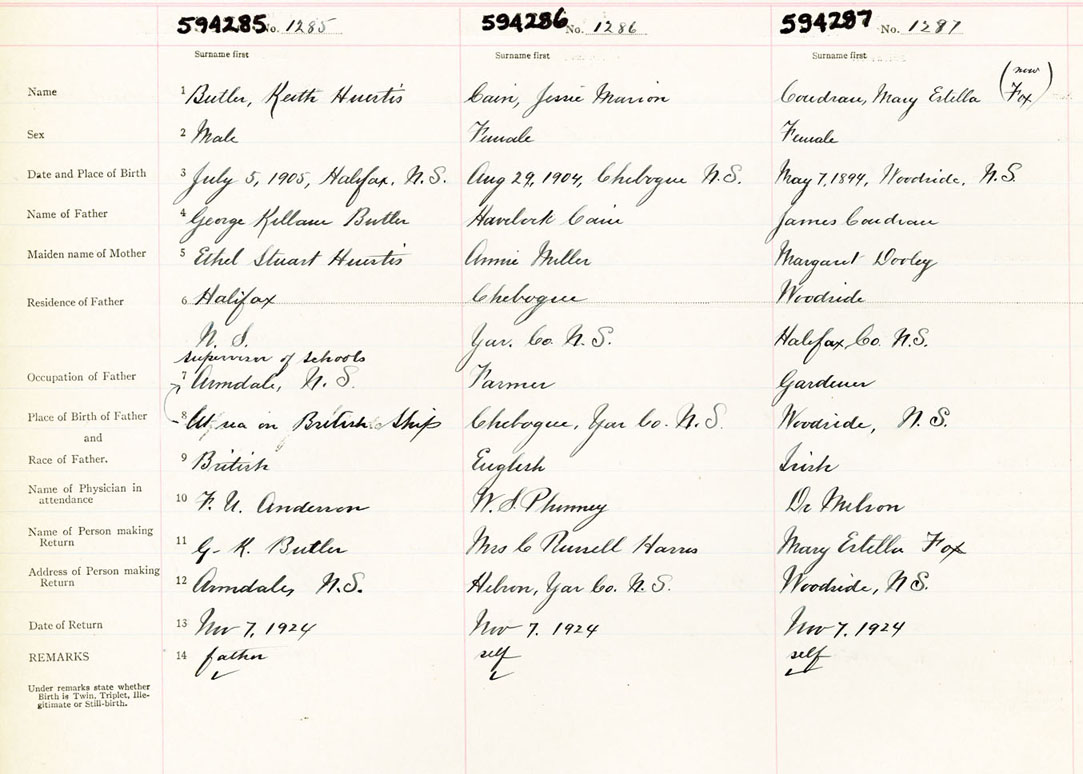 594285 No. 1285 594286 No. 1286 594287 No. 1287
Surname first Surname first Surname first
(now
Name 1 Butler, Keith Huestis Cain, Jessie Marion Coudrau, Mary Estella Fox)
Sex 2 Male Female Female
Date and Place of Birth 3 July 5, 1905, Halifax, N.S. Aug 29, 1904, Chebogue N.S. May 7, 1894, Woodside, N.S.
Name of Father 4 George Killam Butler Havelock Cain James Coudrau
Maiden name of Mother 5 Ethel Stuart Huestis Annie Miller Margaret Dooley
Residence of Father 6 Halifax Chebogue Woodside
N. S. Yar. Co. N.S. Halifax, Co. N.S.
supervisor of schools
Occupation of Father 7 Armdale, N.S. Farmer Gardener
Place of Birth of Father 8 At sea on British Ship Chebogue, Yar Co. N.S. Woodside, N.S.
and
Race of Father. 9 British English Irish
Name of Physician in
attendance 10 F. U. Anderson W. S. Phinney Dr
Name of Person making
Return 11 G. K. Butler Mrs C Russell Harris Mary Estella Fox
Address of Person making
Return 12 Armdale, N.S. Hebron, Yar Co. N.S. Woodside, N.S.
Date of Return 13 Nov 7, 1924 Nov 7. 1924 Nov 7. 1924
REMARKS 14 father self self
Under remarks state whether
Birth is Twin, Triplet, Ille-
gitimate or Still-birth.